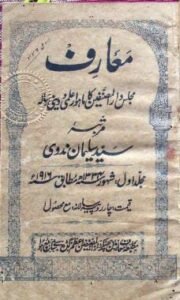 معارف
مجلس دارالمصنفین کا ماہوار علمی و دینی رسالہ
مرتبہ
سید سلیمان ندوی
جلد اول، شہور ۱۳۳۴ھ مطابق ۱۹۱۶ء
قیمت، چار روپیہ سالانہ مع محصول